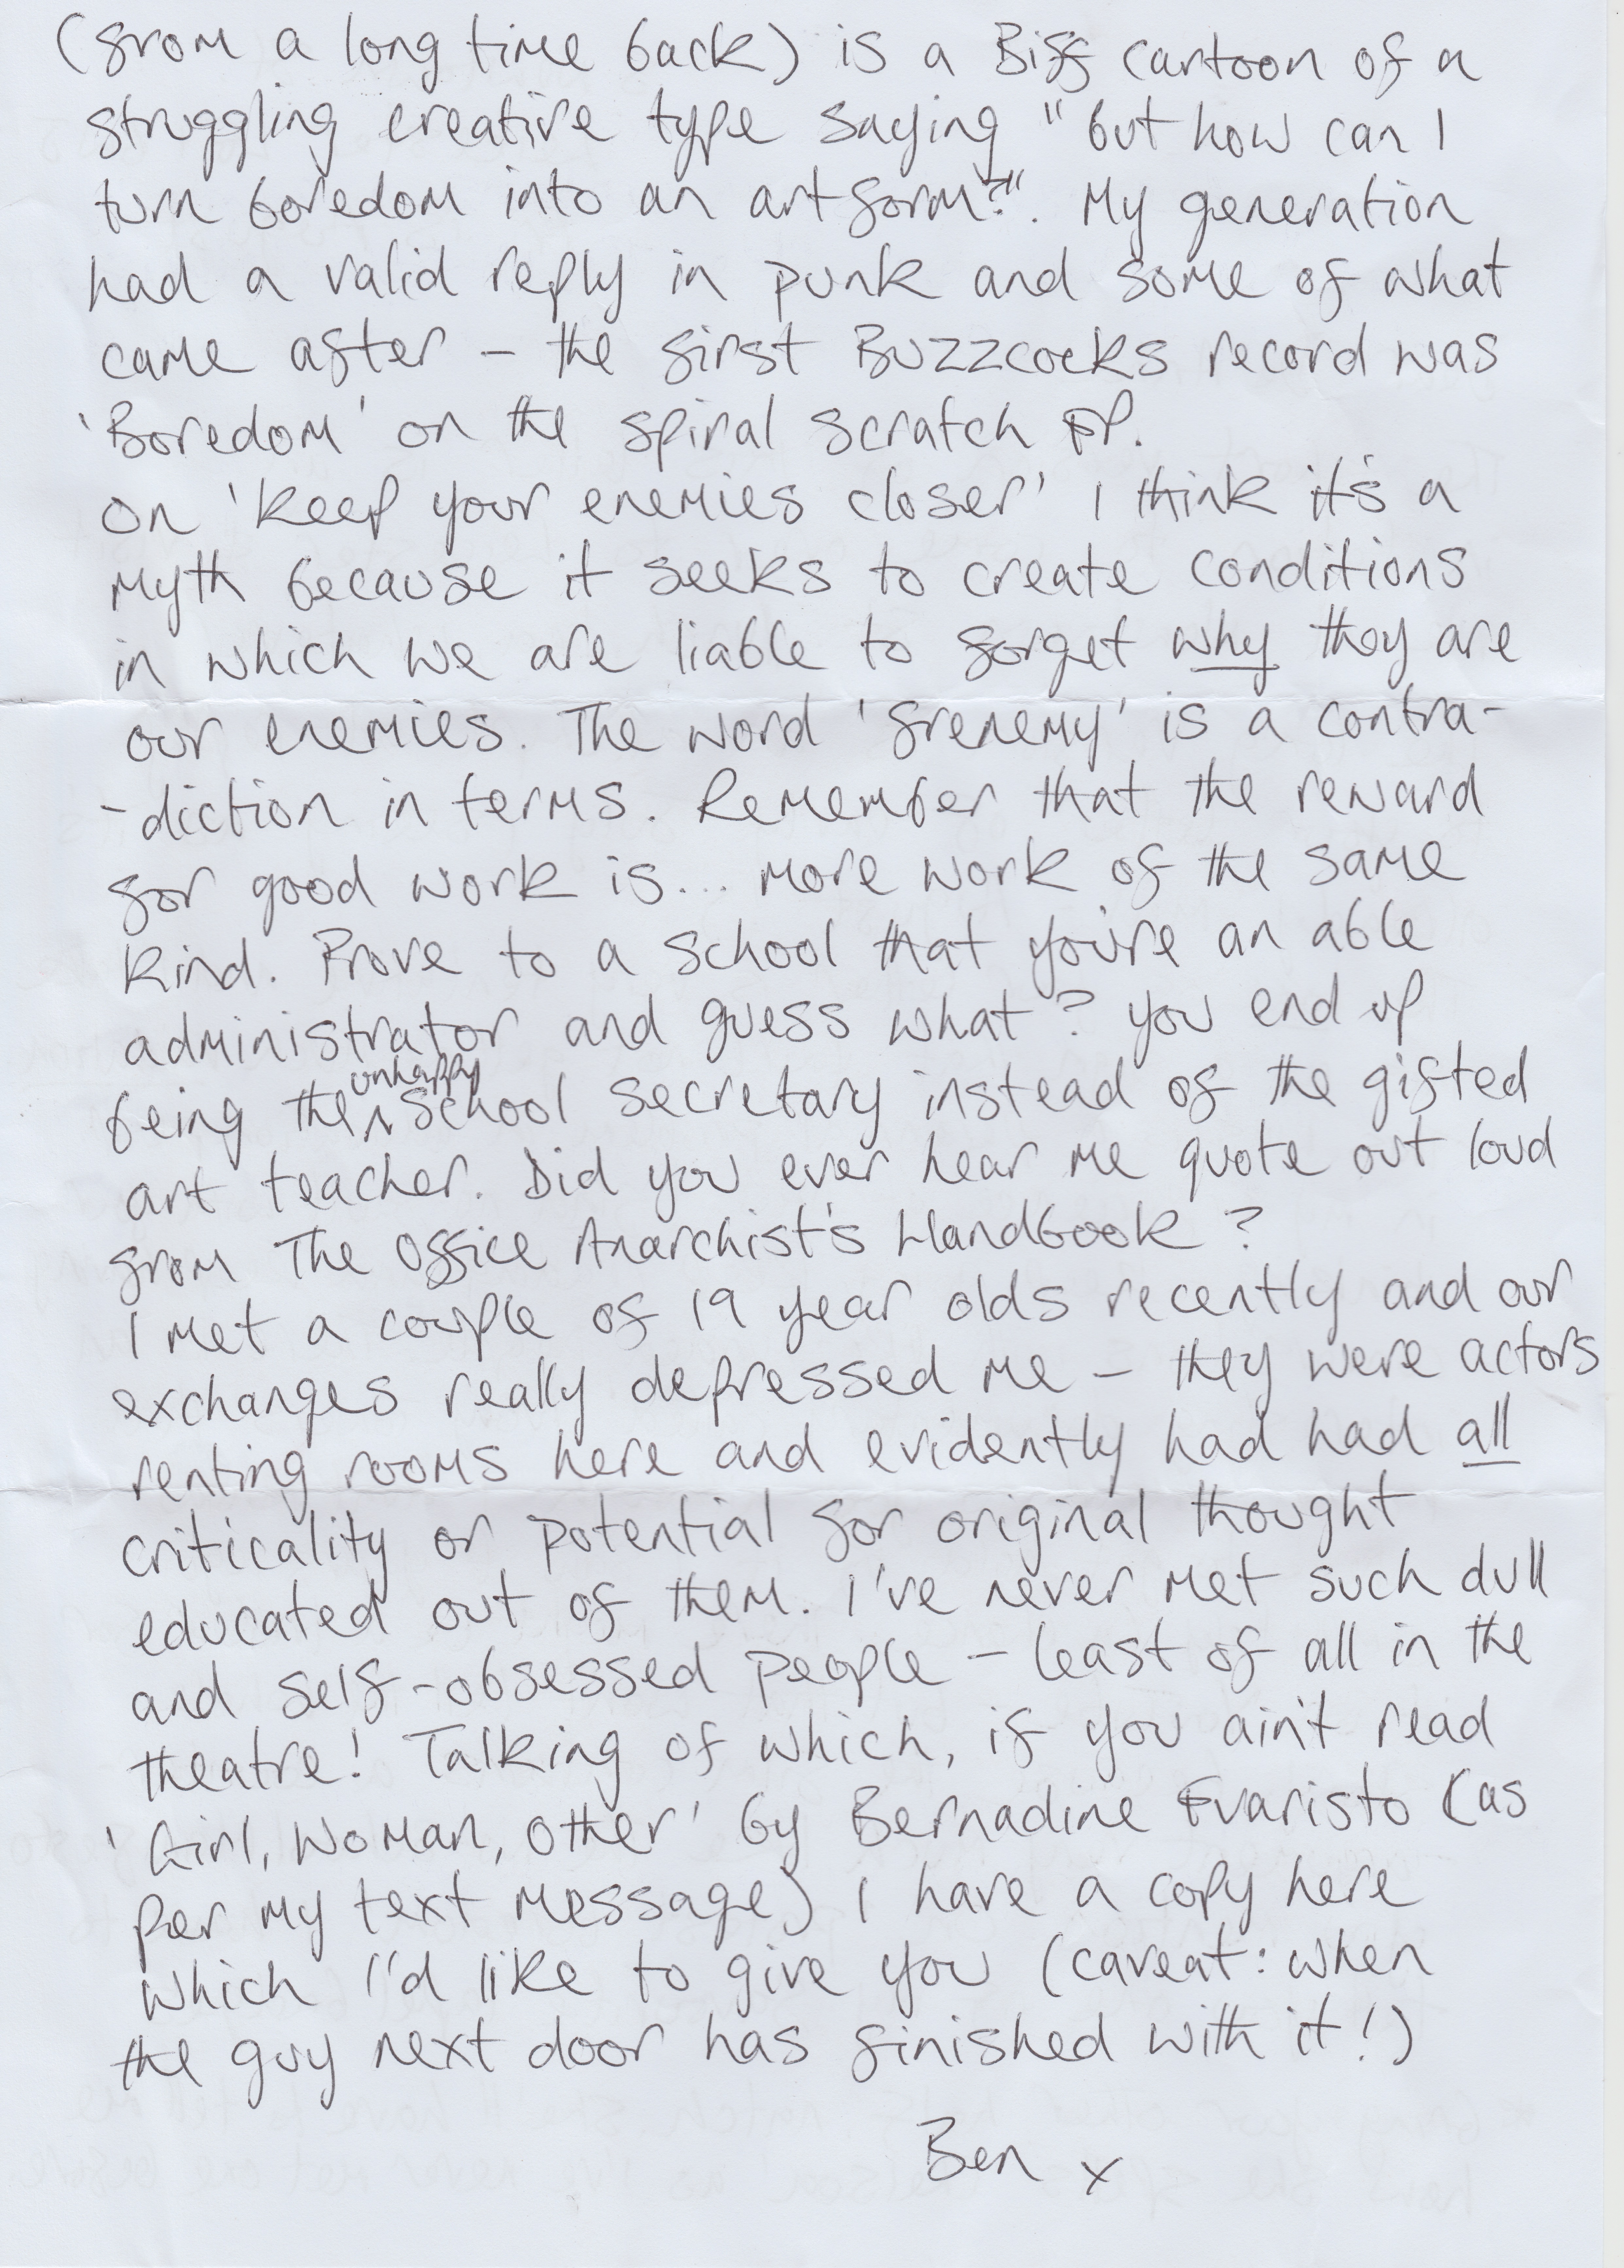 (from a long time back) is a Biff cartoon of a
struggling creative type saying "but how can I
turn boredom into an art form?". My generation
had a valid reply in punk and some of what
came after – the first Buzzcocks record was
'Boredom' on the spiral scratch EP.
On 'keep your enemies closer' I think it's a
myth because it seeks to create conditions
in which we are liable to forget why they are
our enemies. The word 'frenemy' is a contra-
-diction in terms. Remember that the reward
for good work is... more work of the same
kind. Prove to a school that you're an able
administrator and guess what? You end up
being the unhappy school secretary instead of the gifted
art teacher. Did you ever hear me quote out loud
from The Office Anarchist's Handbook?
I met a couple of 19 year olds recently and our
exchanges really depressed me – they were actors
renting rooms here and evidently had had all
criticality or potential for original thought
educated out of them. I've never met such dull
and self-obsessed people – least of all in the
theatre! Talking of which, if you ain't read
'Girl, Woman, Other' by Bernadine Evaristo (as
per my text message) I have a copy here
which I'd like to give you (caveat: when
the guy next door has finished with it!)
Ben x